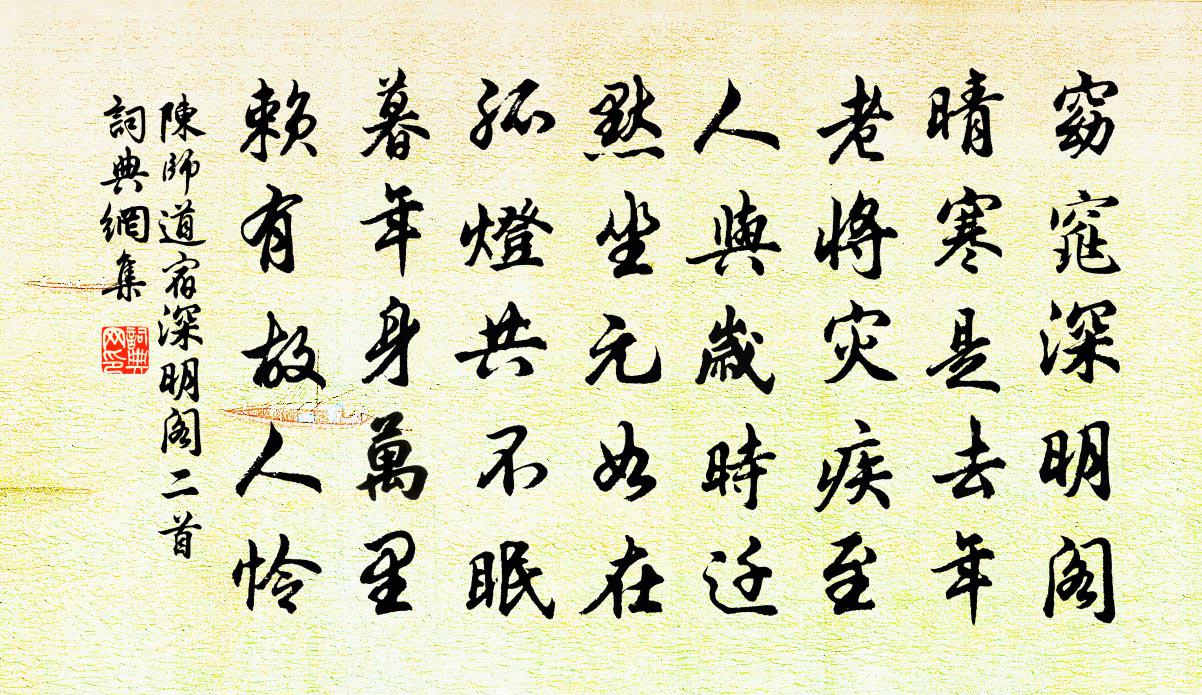 窈窕深明阁
晴寒是去年
老將灾疾至
人與歲時迁
默坐元如在
孤燈共不眠
暮年身萬里
賴有故人怜
陳師道宿深明阁二首
詞典網集
詞典网印